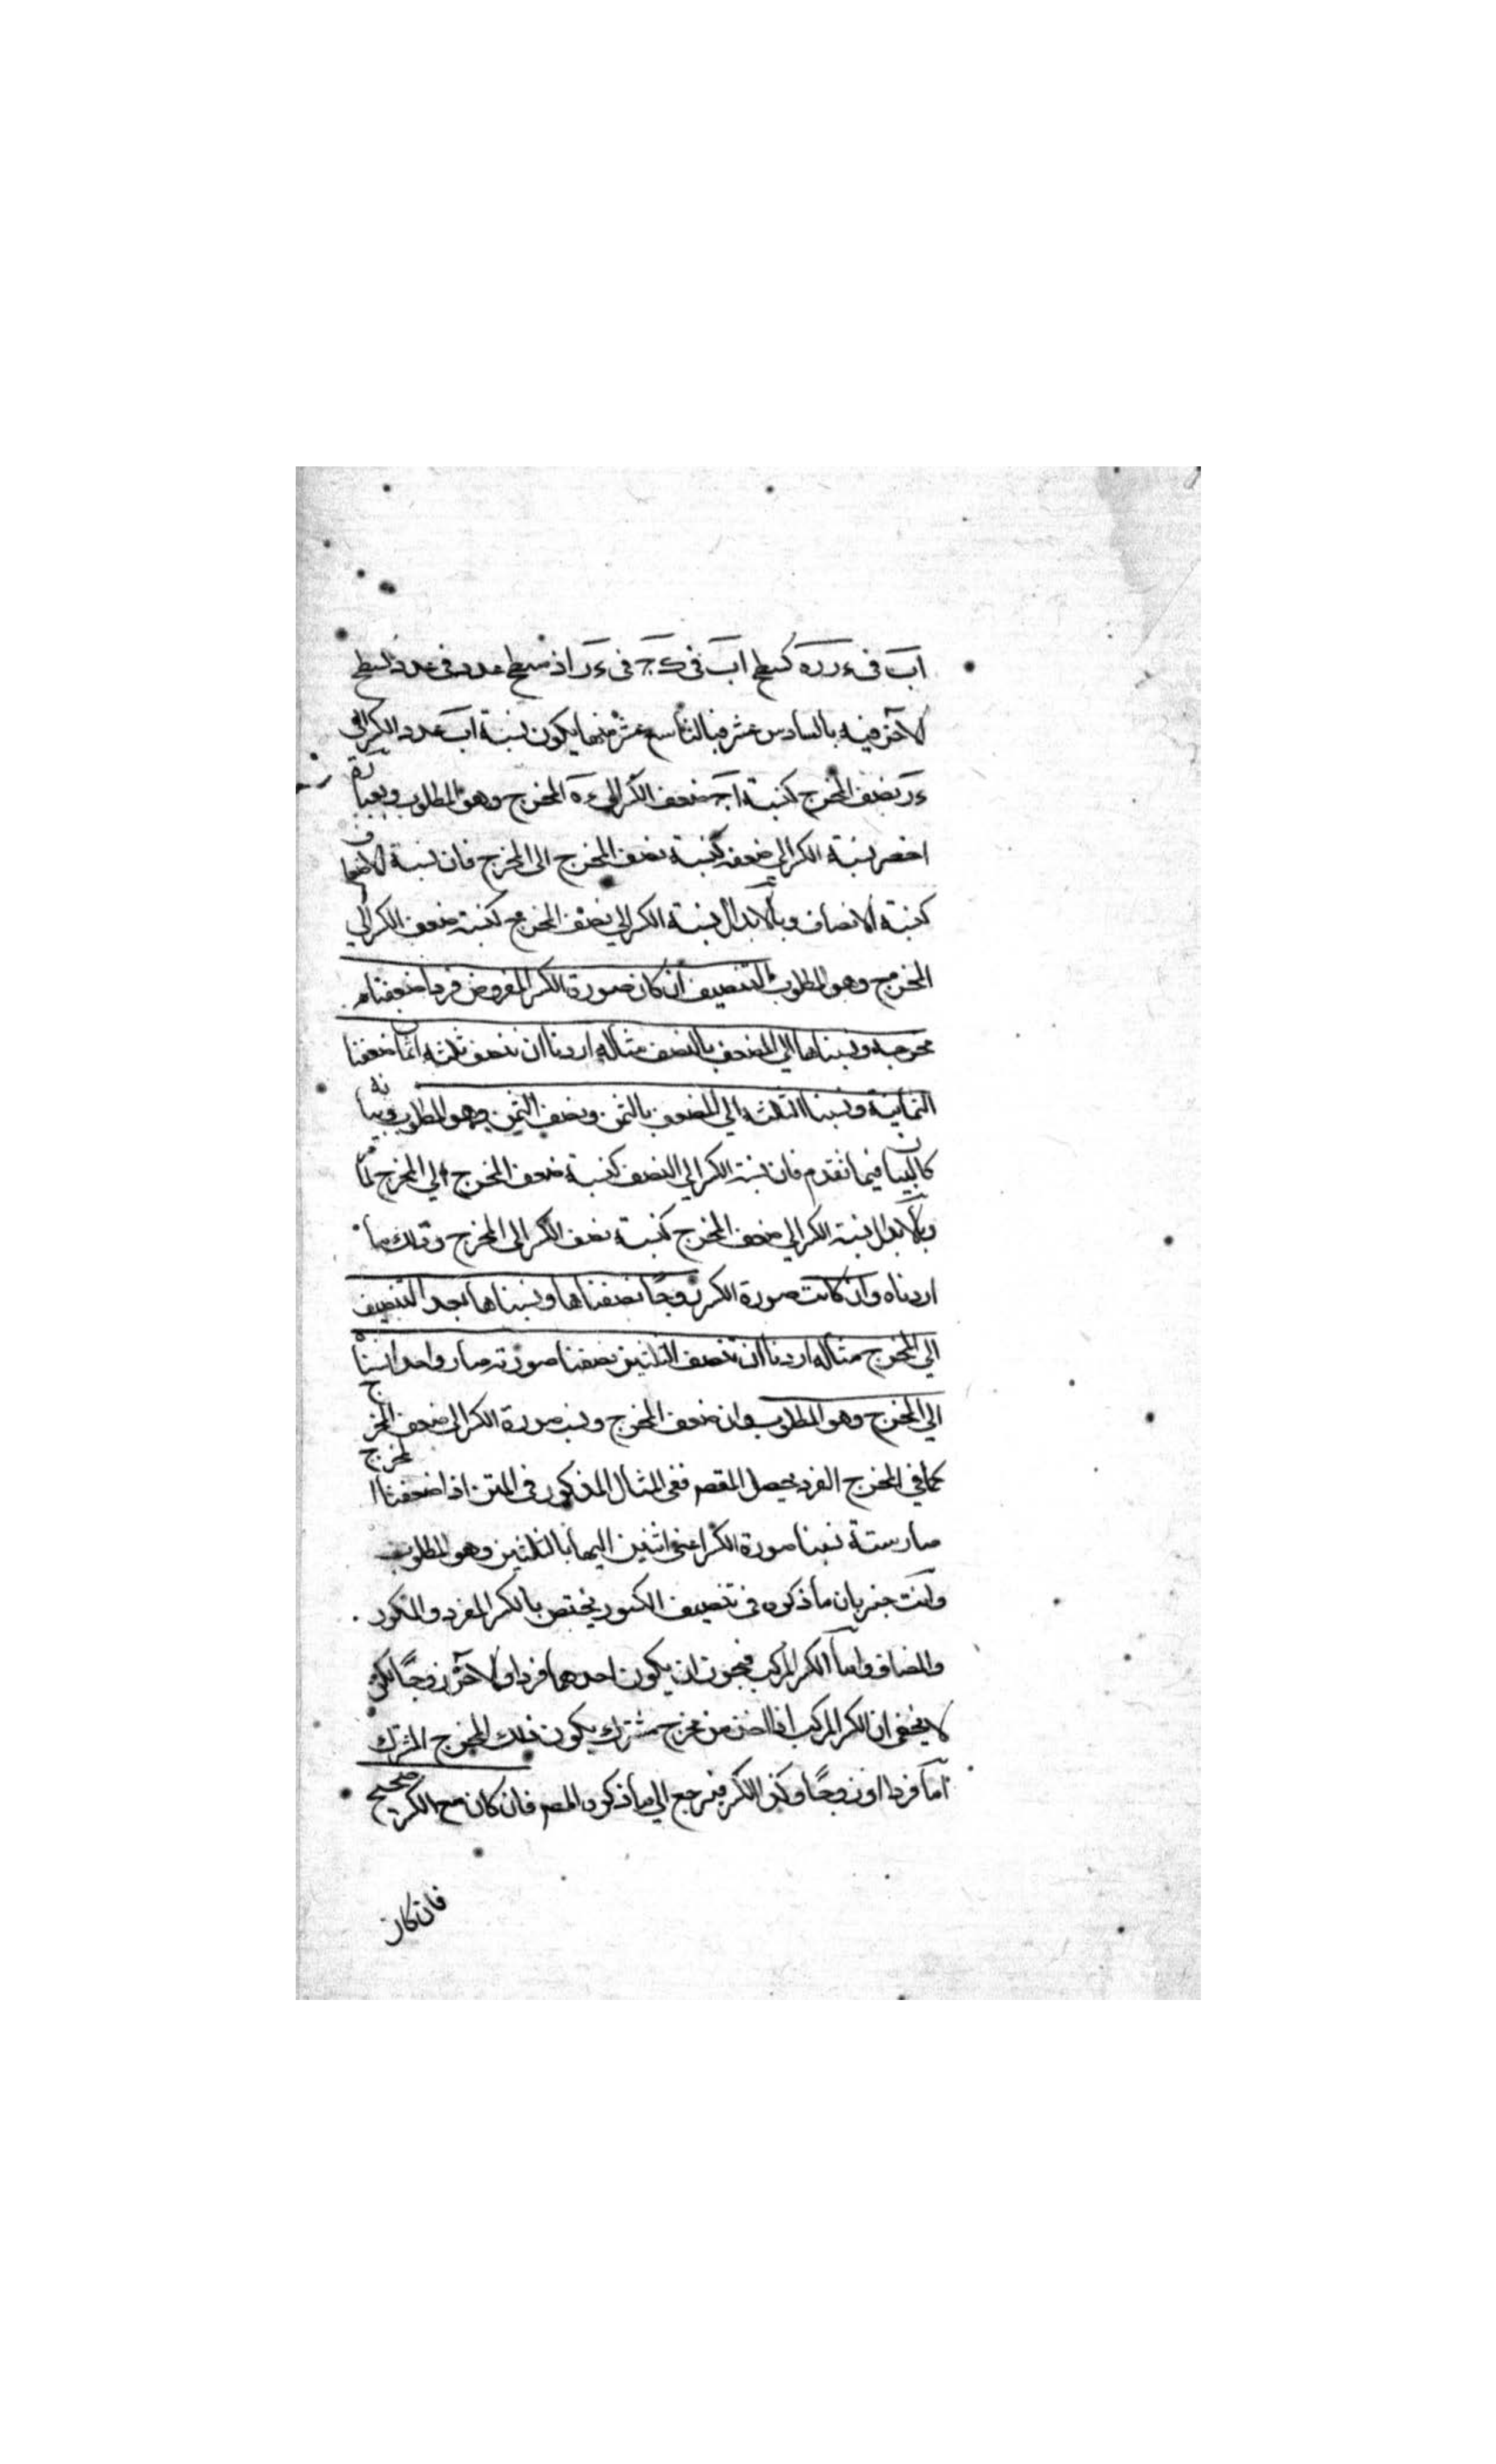 اب فى ء ر ره كسطح اب فى ء ج فى ء ر اذ سطح عدد فى عدد كسطح
الاخر فيه بالسادس عشر فبالتاسع عشر منها يكون نسبة اب عدد الكسر الى
ء ر نصف المخرج كنسبة اج ضعف الكسر الى ء ه المخرج وهو المطلوب وبعبارة
اخصر نسبة الكسر الى ضعفه كنسبة نصف المخرج الى المخرج فان نسبة الاضعاف
كنسبة الانصاف وبالابدال نسبة الكسر الى نصف المخرج كنسبة ضعف الكسر الى
المخرج وهو المطلوب التنصيف ان كان صورة الكسر المفروض فردا ضعفنا
مخرجه ونسبناها الى المضعف بالنصف مثاله اردنا ان ننصف ثلثة اثمان ضعفنا
الثمانية ونسبنا الثلثة الى المضعف بالثمن ونصف الثمن وهو المطلوب وبيانه
كالبيان فيما تقدم فان نسبة الكسر الى النصف كنسبة ضعف المخرج الى المخرج لما
وبالابدال نسبة الكسر الى ضعف المخرج كنسبة نصف الكسر الى المخرج وذلك ما
اردناه وان كانت صورة الكسر زوجًا نصفناها ونسبناها بعد التنصيف
الى المخرج مثاله اردنا ان ننصف الثلثين نصفنا صورته صار واحدا نسبناه
الى المخرج وهو المطلوب وان ضعف المخرج ونسب صورة الكسر الى ضعف المخرج
كما فى المخرج الفرد يحصل المقصر ففى المثال المذكور فى المتن اذا ضعفنا المخرج
صار ستة نسبنا صورة الكسر اعنى اثنين اليها بالثلثين وهو المطلوب
وانت خبير بان ما ذكره فى تنصيف الكسور يختص بالكسر المفرد والمكرر
والمضاف واما الكسر المركب فيجوز ان يكون احدهما فردا والاخر زوجًا لكن
لا يخفى ان الكسر المركب اذا اخذ من مخرج مشترك يكون ذلك المخرج المشترك
اما فردا او زوجًا وكذا الكسر فيرجع الى ما ذكره المصر فان كان مع الكسر صحيح
فان كان